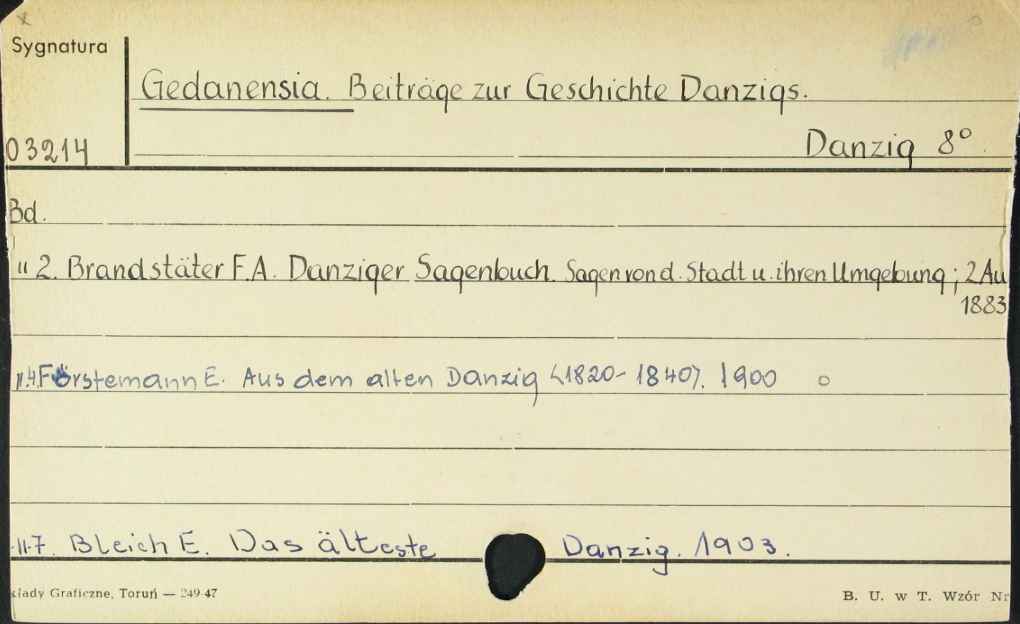 Sygnatura
Gedanensia. Beiträge zur Geschichte Danzigs.
03214
Danzig 8°
Bd.
" 2. Brandstäter F.A. Danziger Sagenbuch. Sagen von d. Stadt u. ihren Umgebung; 2 Au
1883
".4. Förstemann E. Aus dem alten Danzig <1820-1840>. 1900
-"-7. Bleich E. Das älteste Danzig. 1903.
kłady Graficzne, Toruń — 249-47
B. U. w T. Wzór Nr